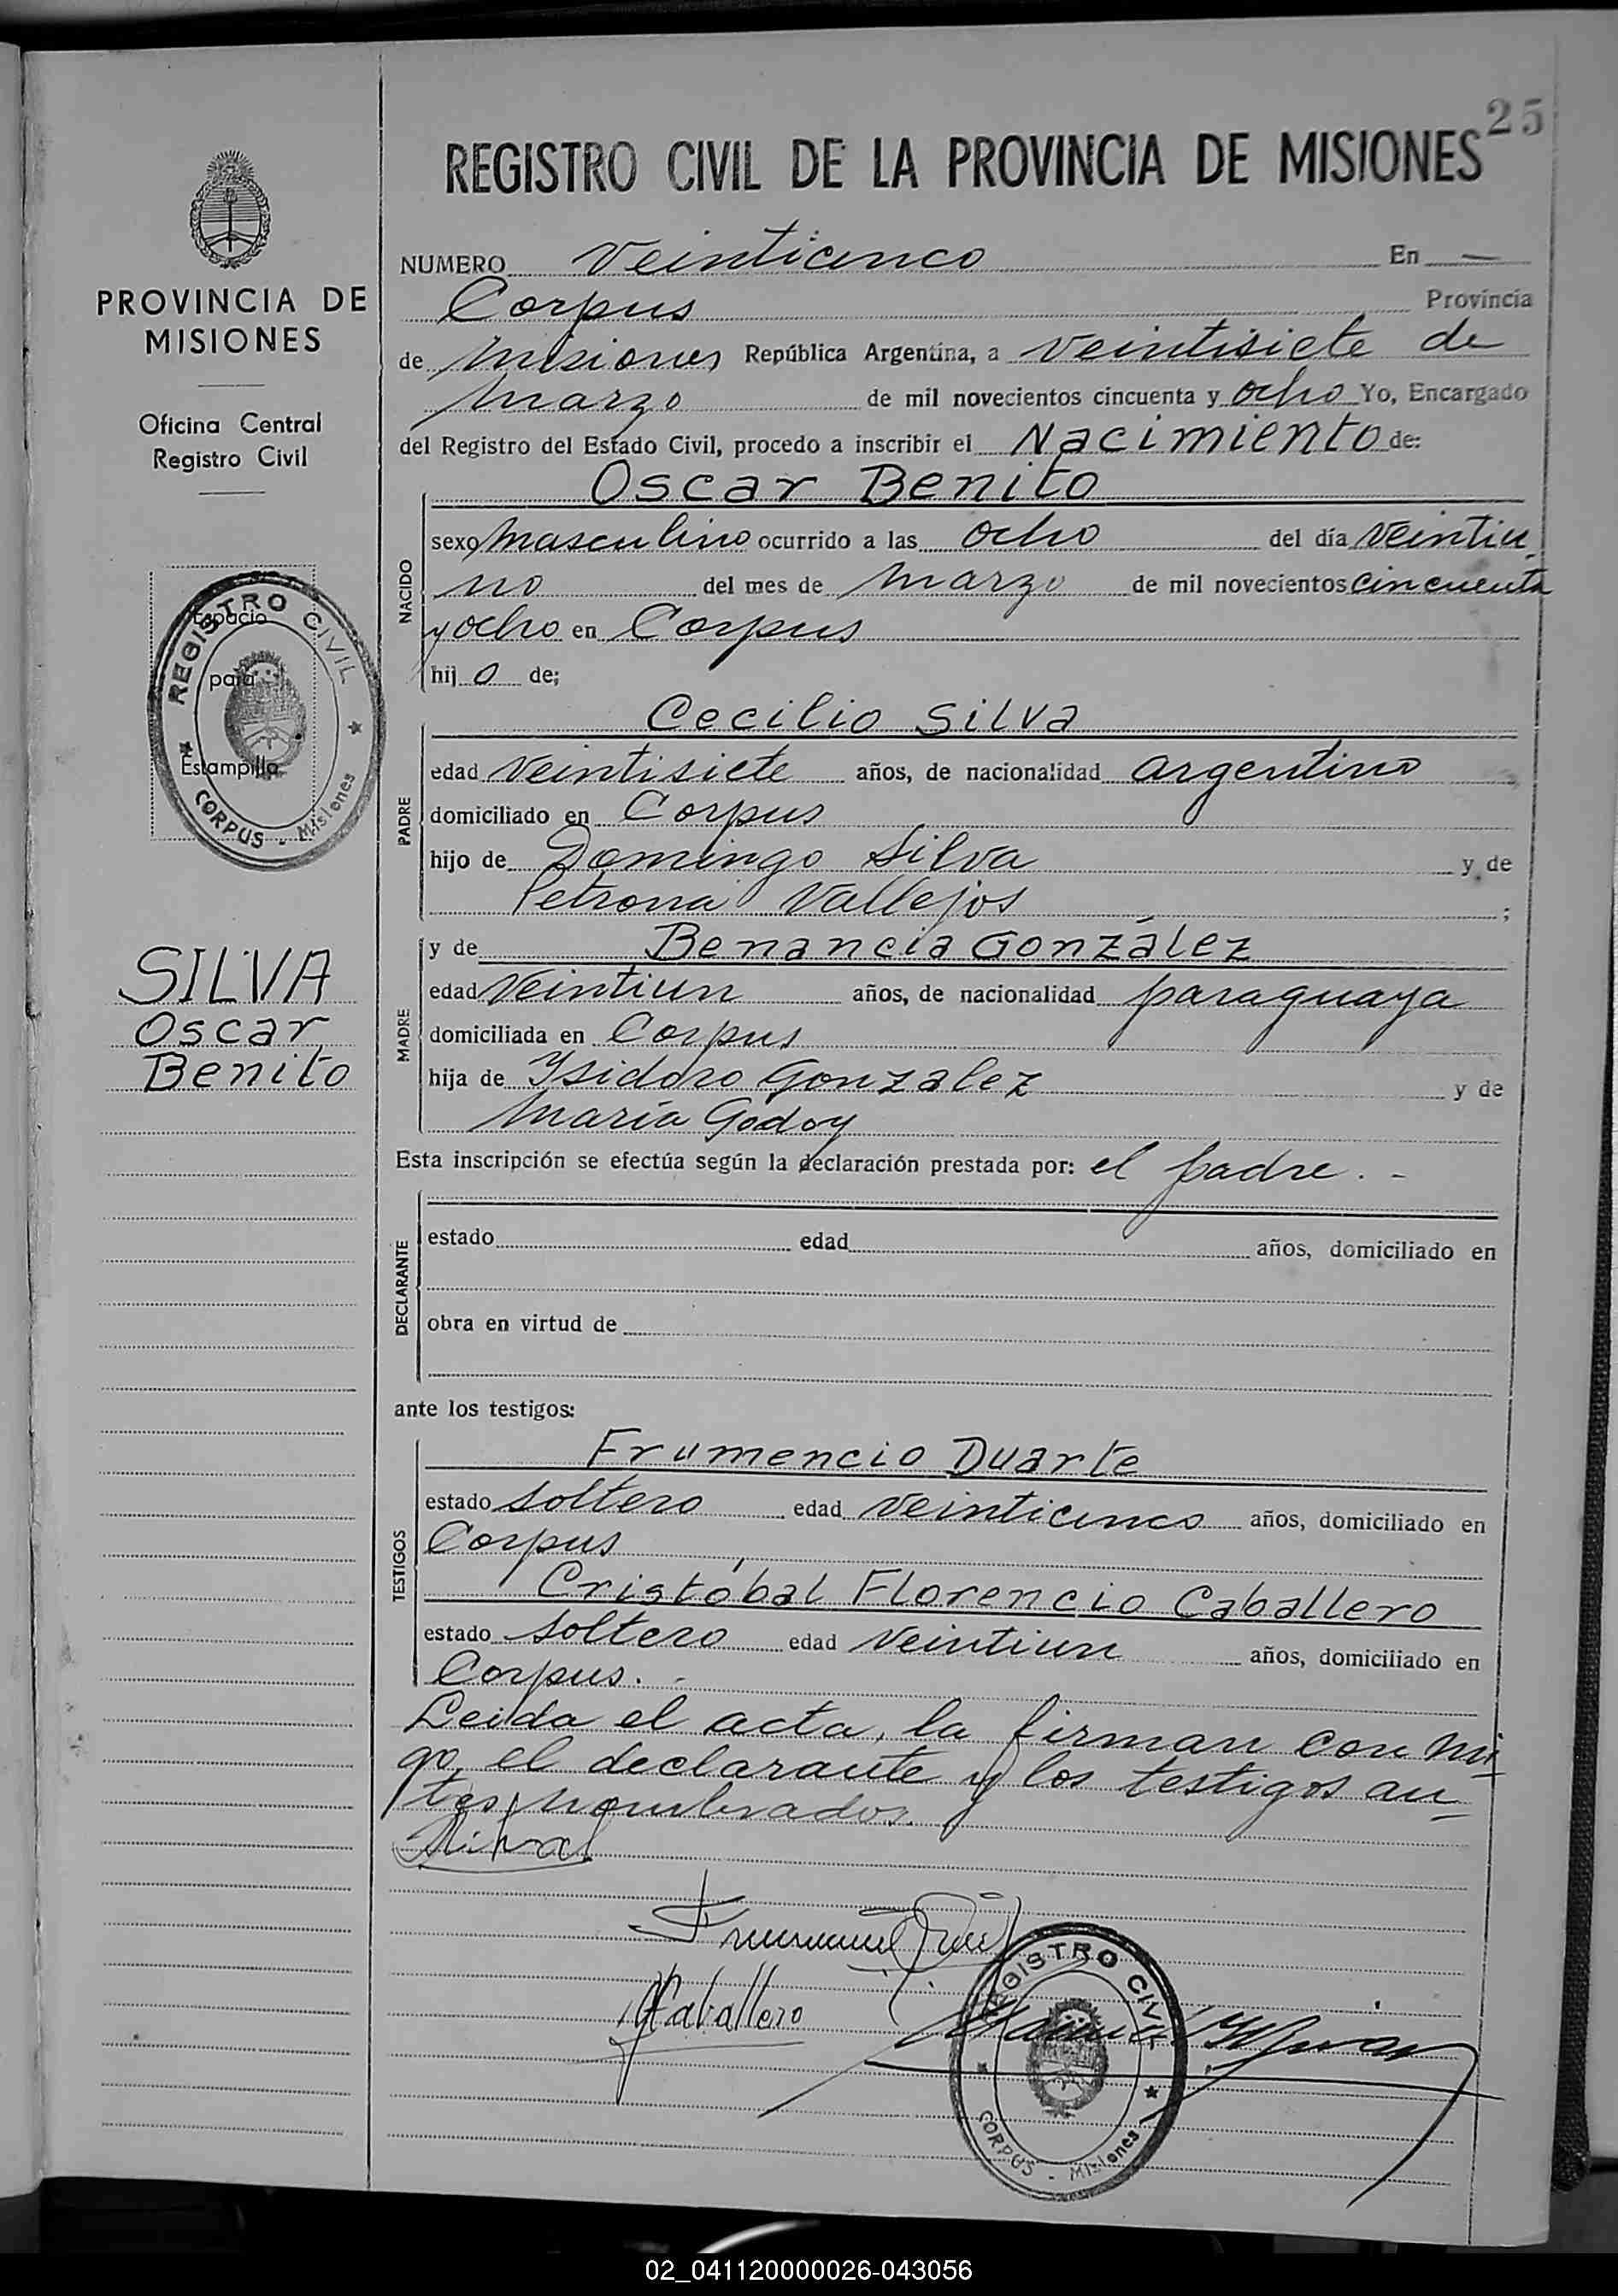 25
REGISTRO CIVIL DE LA PROVINCIA DE MISIONES
PROVINCIA DE
MISIONES
Oficina Central
Registro Civil
Espacio
para
Estampilla
REGISTRO CIVIL
CORPUS - Misiones
SILVA
Oscar
Benito
NUMERO Veinticinco En —
Corpus Provincia
de Misiones República Argentina, a veintisiete de
Marzo de mil novecientos cincuenta y ocho Yo, Encargado
del Registro del Estado Civil, procedo a inscribir el Nacimiento de:
NACIDO
Oscar Benito
sexo masculino ocurrido a las ocho del día veintiu
no del mes de marzo de mil novecientos cincuenta
y ocho en Corpus
hij o de;
PADRE
Cecilio Silva
edad veintisiete años, de nacionalidad argentino
domiciliado en Corpus
hijo de Domingo Silva y de
Petrona Vallejos ;
MADRE
y de Benancia González
edad veintiun años, de nacionalidad paraguaya
domiciliada en Corpus
hija de Ysidoro Gonzalez y de
María Godoy
Esta inscripción se efectúa según la declaración prestada por: el padre. -
DECLARANTE
estado edad años, domiciliado en
obra en virtud de
ante los testigos:
TESTIGOS
Frumencio Duarte
estado soltero edad veinticinco años, domiciliado en
Corpus
Cristóbal Florencio Caballero
estado soltero edad veintiun años, domiciliado en
Corpus. -
Leida el acta, la firman con mi-
go, el declarante y los testigos an-
tes nombrados.
Silva
Caballero
REGISTRO CIVIL
CORPUS - Misiones
02_041120000026-043056